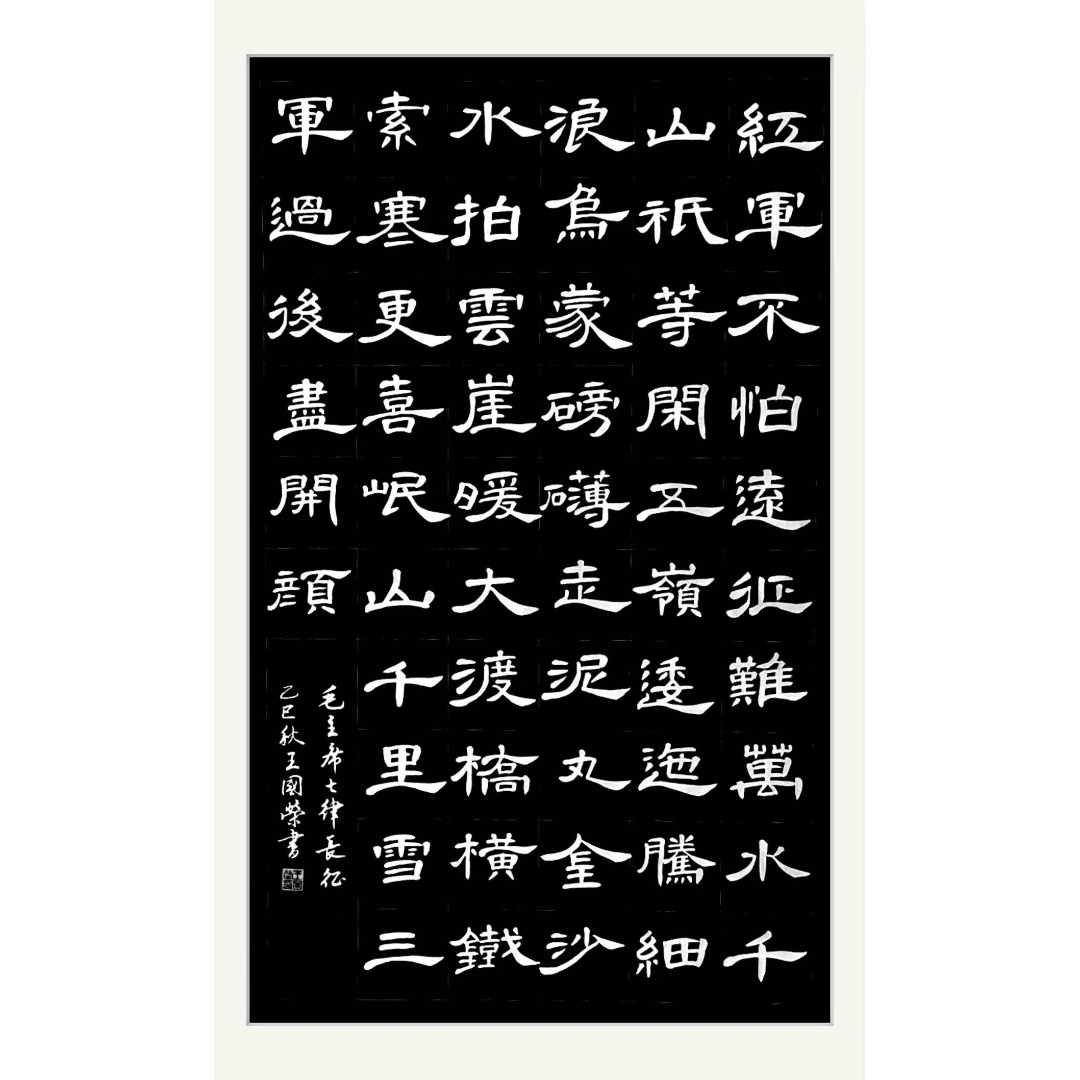 紅軍不怕遠征難萬水千
山祇等閑五嶺逶迤騰細
浪烏蒙磅礴走泥丸金沙
水拍雲崖暖大渡橋橫鐵
索寒更喜岷山千里雪三
軍過後盡開顔
毛主席七律長征
乙巳秋王國榮書